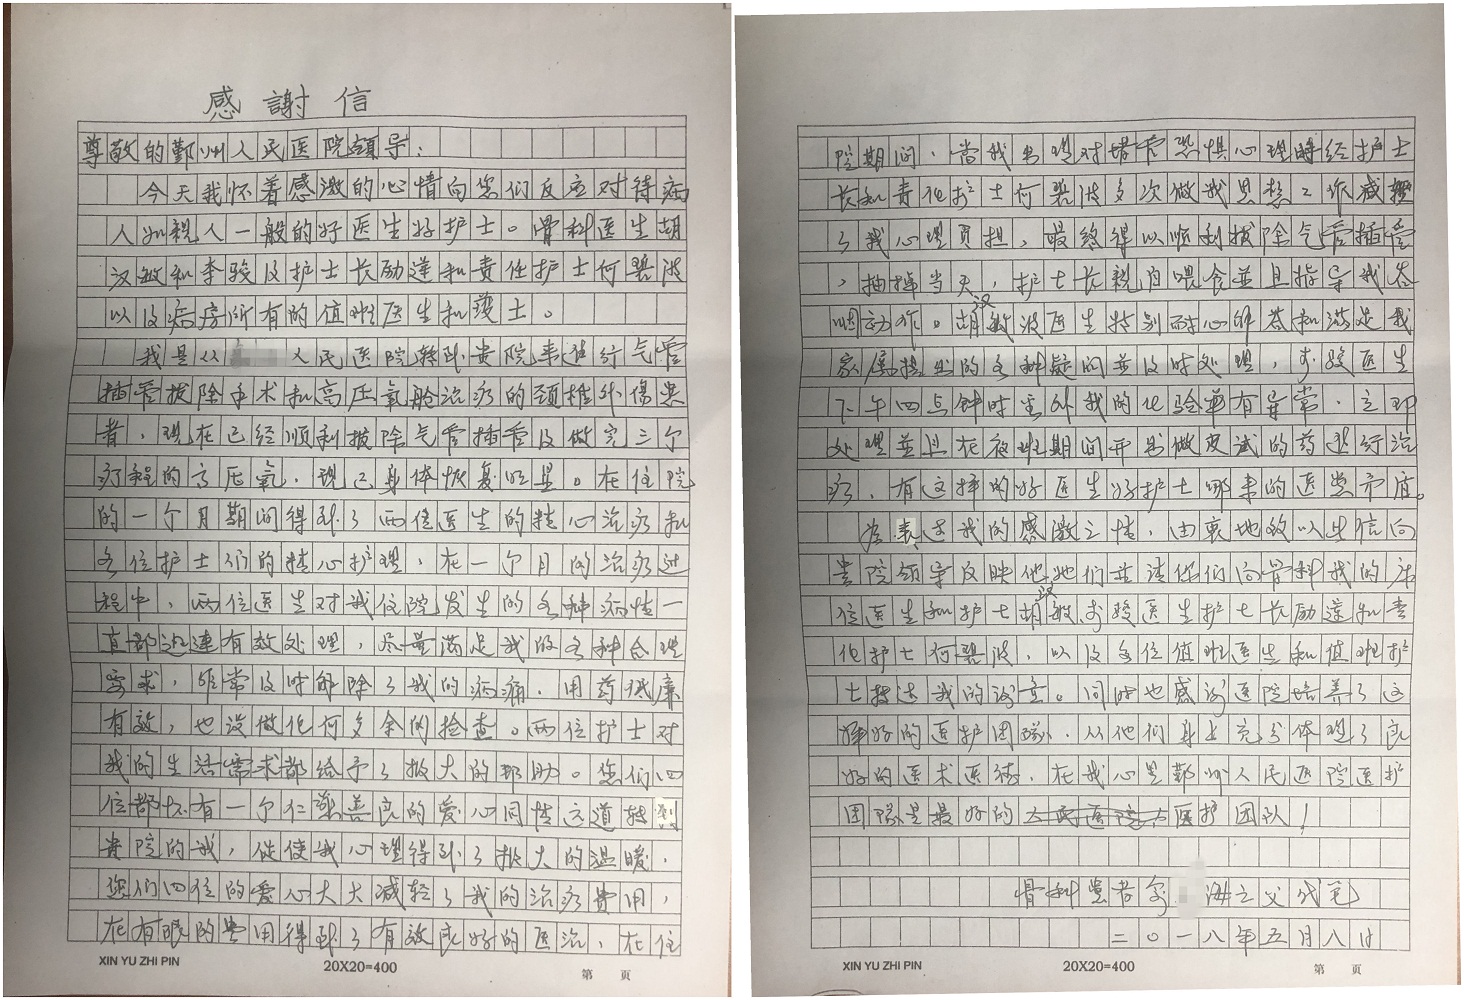 感謝信
尊敬的鄞州人民医院领导：
今天我怀着感激的心情向您们反应对待病
人如親人一般的好医生好护士。骨科医生胡
汉敏和李骏及护士长励莲和责任护士何碧波
以及病房所有的值班医生和護士。
我是从 人民医院转到贵院来进行气管
插管拔除手术和高压氧舱治疗的颈椎外傷患
者，现在已经顺利拔除气管插管及做完三个
疗程的高压氧，现已身体恢复明显。在住院
的一个月期间得到了两位医生的精心治疗和
各位护士们的精心护理，在一个月的治疗过
程中，两位医生对我住院发生的各种病情一
直都迅速有效处理，尽量满足我的各种合理
要求，非常及时解除了我的病痛，用药低廉
有效，也没做任何多余的捡查。两位护士对
我的生活需求都给予了极大的帮助。您们四
位都怀有一个仁慈善良的爱心同情这道转到
贵院的我，促使我心理得到了极大的温暖，
您们四位的爱心大大减轻了我的治疗费用，
在有限的费用得到了有效良好的医治，在住
XIN YU ZHI PIN 20X20=400 第 页
院期间，当我出现对堵管恐惧心理時经护士
长和责任护士何碧波多次做我思想工作减輕
了我心理負担，最终得以顺利拔除气管插管
，抽掉当天，护士长親自喂食並且指导我吞
咽动作。胡汉敏波医生特别耐心解答和满足我
家属提出的各种疑问並及时处理，李骏医生
下午四点钟时意外我的化验单有异常，立即
处理並且在夜班期间开出做皮试的药进行治
疗，有这样的好医生好护士哪来的医患矛盾。
为表达我的感激之情，由衷地致以此信向
贵院领导反映他她们並请你们向骨科我的床
位医生和护士胡汉敏李骏医生护士长励莲和责
任护士何碧波，以及各位值班医生和值班护
士转达我的谢意。同时也感谢医院培养了这
样好的医护团隊，从他们身上充分体现了良
好的医术医德，在我心里鄞州人民医院医护
团隊是最好的医护团队！
骨科患者 海之父代笔
二〇一八年五月八日
XIN YU ZHI PIN 20X20=400 第 页